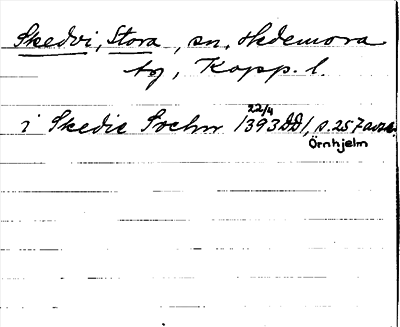 Skedvi, Stora, sn, Hedemora
tg, Kopp. l.
22/4
i Skedie Sochn 1393 DD1, s. 257 avskr.
Örnhjelm